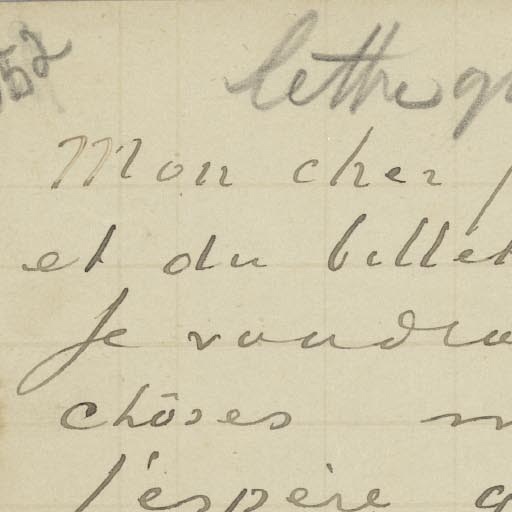 52
lettre
Mon cher
et du billet
Je voudra
chôses
J'espère